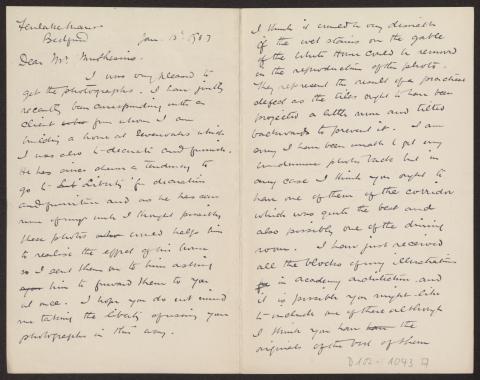 Fenlake Manor
Bedford Jan. 15th 1903
Dear Mr. Muthesius.
I was very pleased to
get the photographs. I have just
recently been corresponding with a
client for whom I am
building a house at Sevenoaks which
I was also to decorate and furnish.
He has since shown a tendency to
go to "Liberty" for decoration
and furniture and as he has seen
none of my work I thought possibly
these photos would help him
to realise the effect of his house
so I sent them on to him asking
him to forward them to you
at once. I hope you do not mind
me taking the liberty of using your
photographs in this way.
I think it would be very desirable
if the wet stains on the gable
of the White House could be removed
in the reproduction of the photo.
They represent the result of a practical
defect as the tiles ought to have been
projected a little more and tilted
backwards to prevent it. I am
sorry I have been unable to get any
photos but in
any case I think you ought to
have one of them of the corridor
which was quite the best and
also possibly one of the dining
room. I have just received
all the blocks of my illustrations
in academy architecture and
it is possible you might like
to include one of these although
I think you have the
originals of the best of them
D 102 - 1043